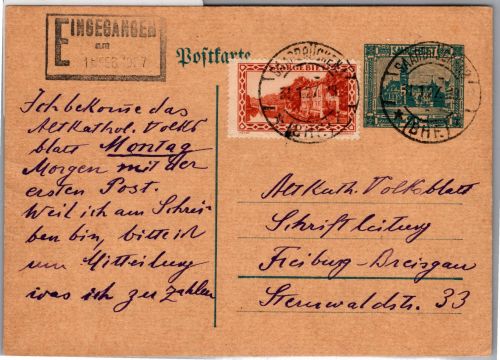 EINGEGANGEN
am
Postkarte
SAARGEBIET
SAARBRÜCKEN
31.1.27
(BHF.)
Ich bekomme das
Altkathol. Volks
blatt Montag
Morgen mit der
ersten Post.
Weil ich am Schrei-
ben bin, bitte ich
um Mitteilung
was ich zu zahlen
Altkath. Volksblatt
Schriftleitung
Freiburg-Breisgau
Sternwaldstr. 33